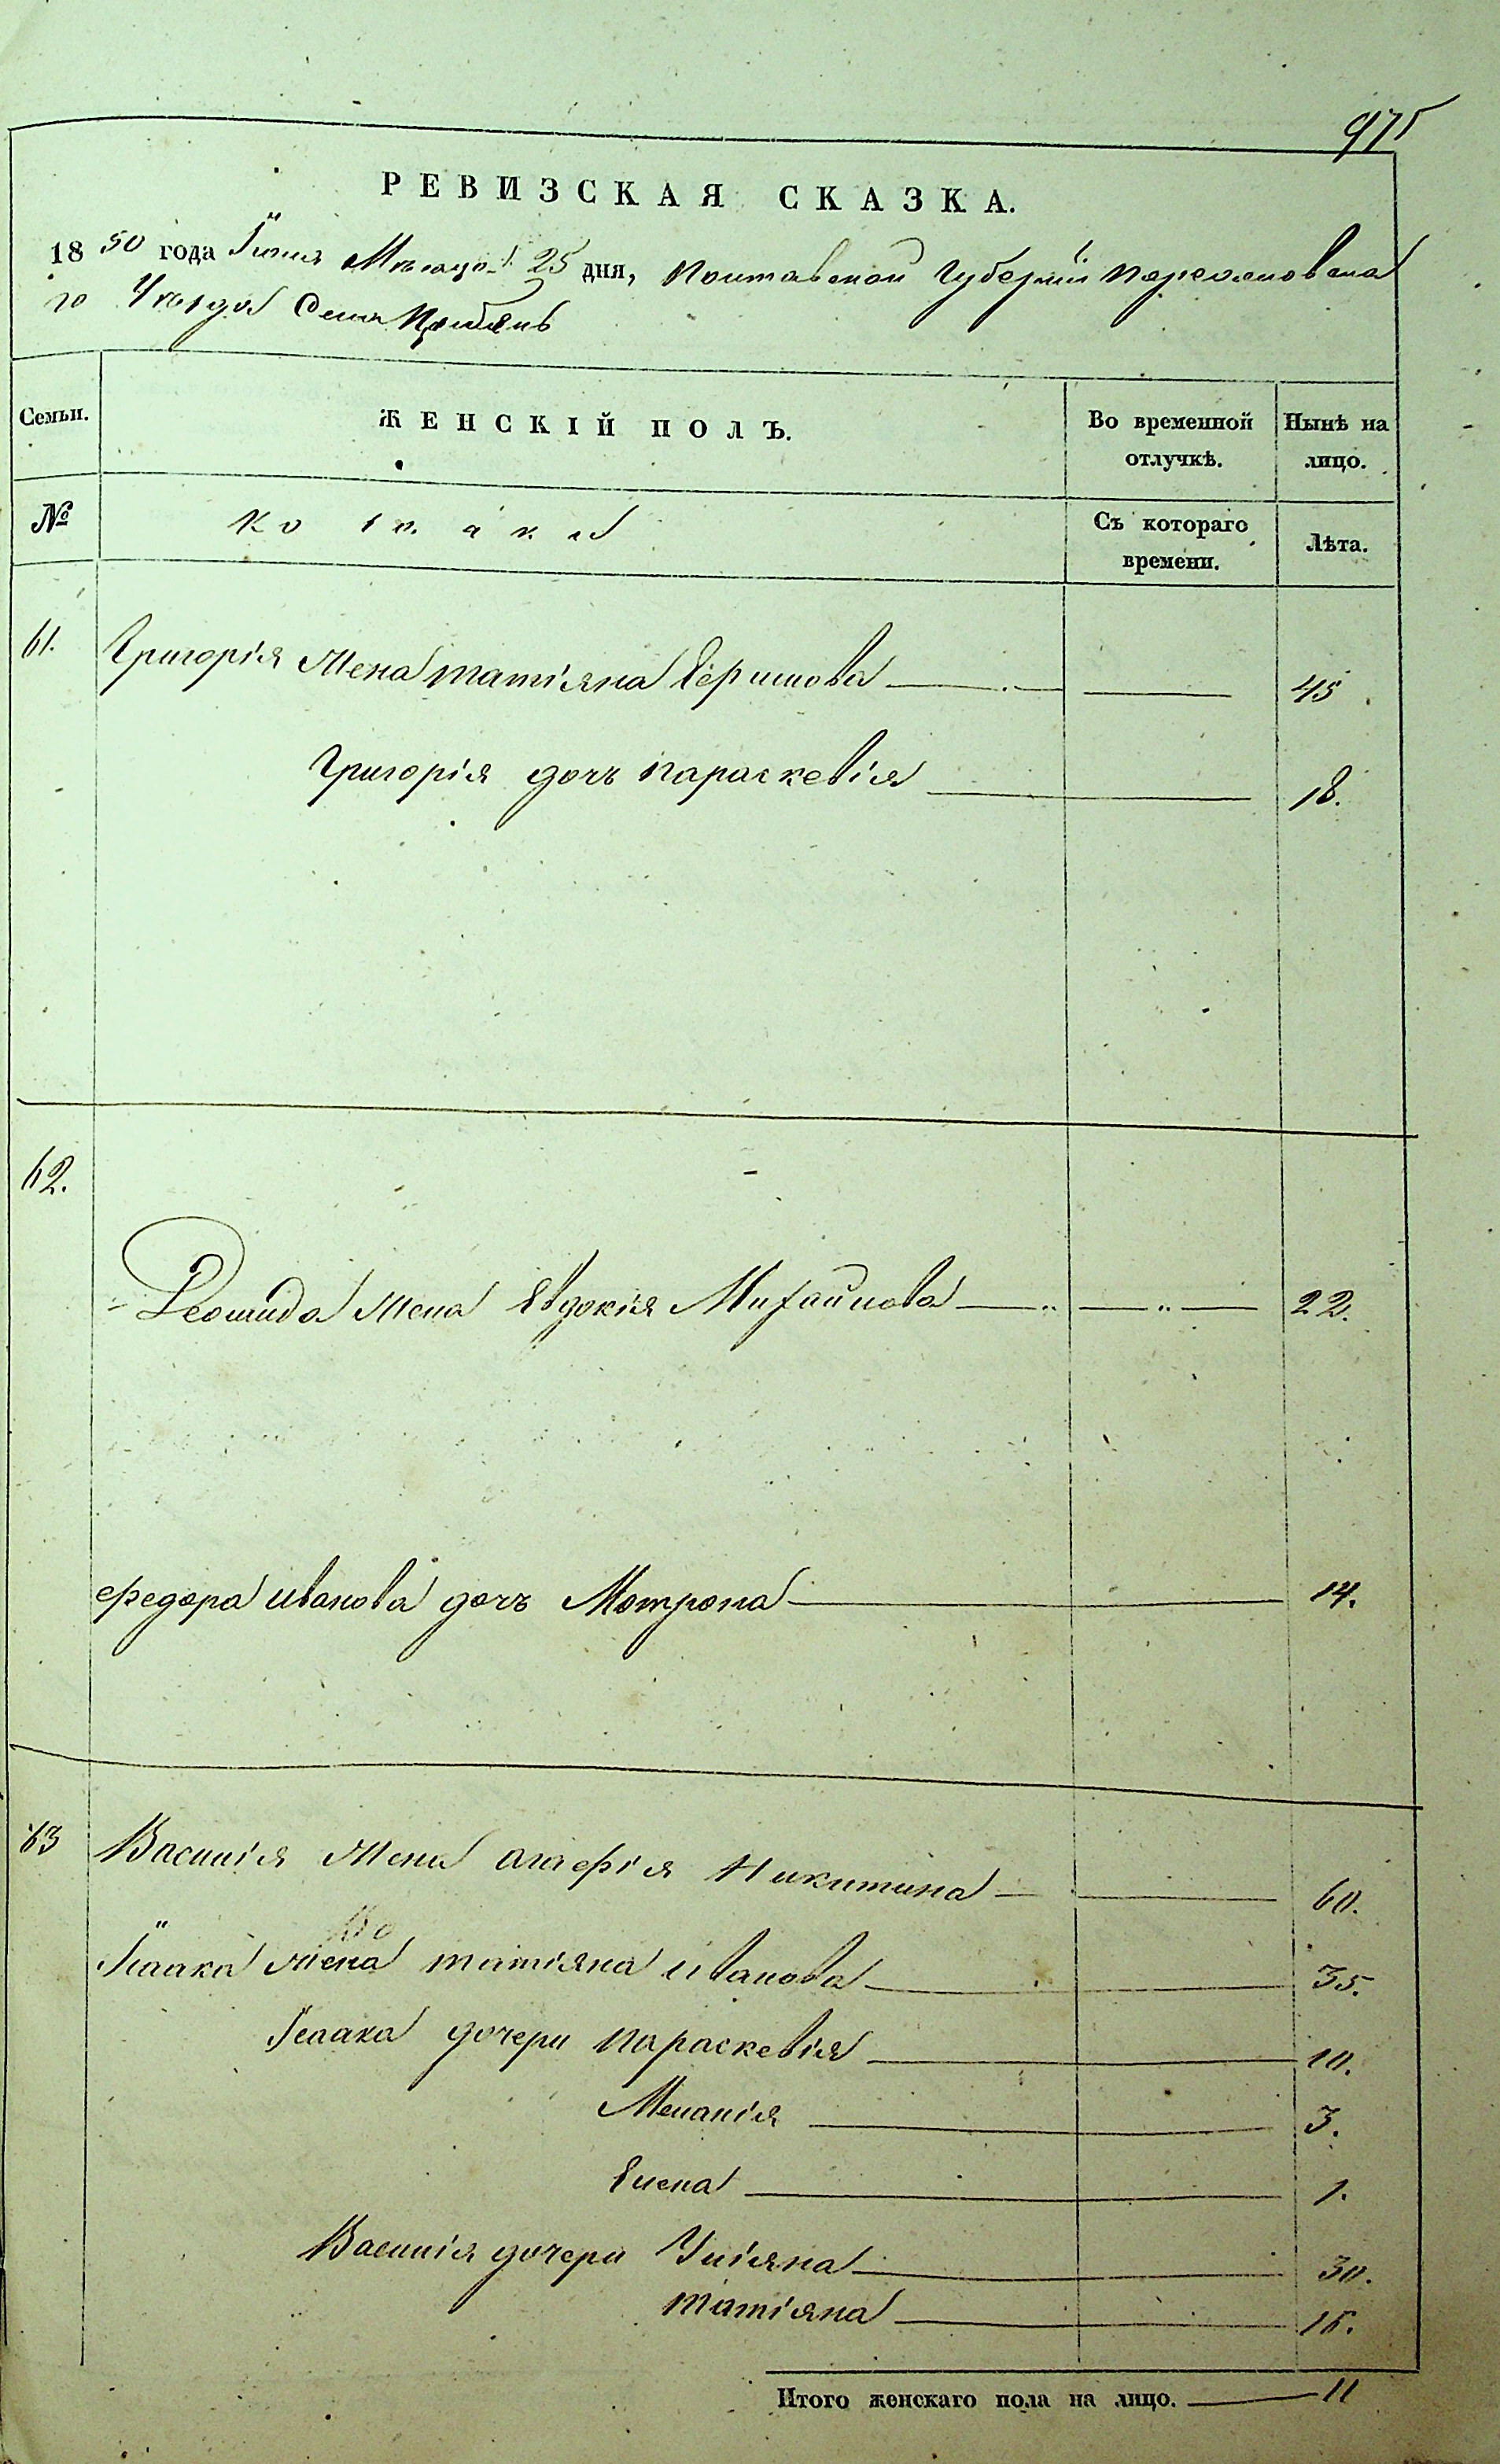 975
РЕВИЗСКАЯ СКАЗКА.
1850 года Іюня Мѣсяца 25 дня, Полтавской Губерніи Переяславска
го Уѣзда Села
Семьи. ЖЕНСКІЙ ПОЛЪ. Во временной отлучкѣ. Нынѣ на лицо.
№ козака Съ котораго времени. Лѣта.
61. Григорія жена татіяна 45
Григорія дочъ параскевія 18.
62.
Леонида жена Евдокія Михайлова 22.
Федора иванова дочъ Мотрона 14.
63 Василія жена агафія Никитина 60.
Ісаака жена татіяна иванова 35.
Ісаака дочери параскевія 10.
Меланія 3.
Елена 1.
Василія дочери Уліяна 30.
татіяна 15.
Итого женскаго пола на лицо. 11